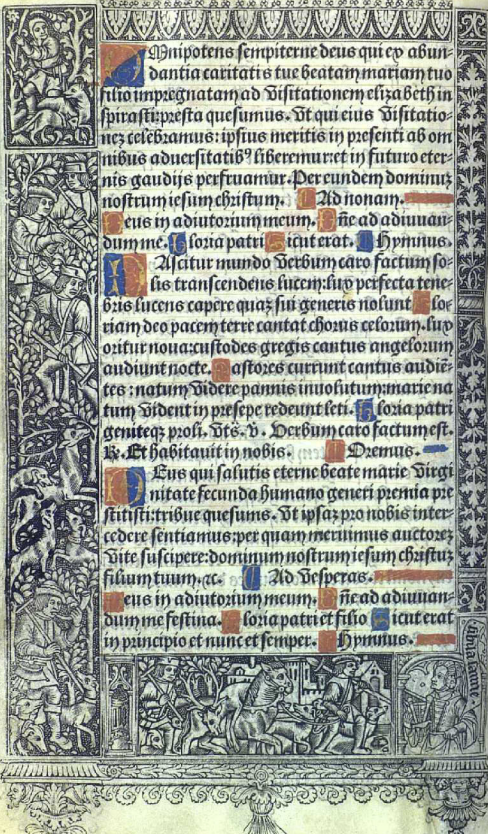 Omnipotens sempiterne deus qui ex abun-
dantia caritatis tue beatam mariam tuo
filio impregnatam ad Visitationem elizabeth in
spirasti:presta quesumus. Vt qui eius Visitatio-
nez celebramus: ipsius meritis in presenti ab om
nibus aduersitatibꝰ liberemur:et in futuro eter-
nis gaudijs perfruamur. Per eundem dominuz
nostrum iesum christum. Ad nonam.
Deus in adiutorium meum. Dñe ad adiuuan-
dum me. Gloria patri Sicut erat. Hymnus.
Nascitur mundo Verbum caro factum so-
lis transcendens lucem:lux perfecta tene-
bris lucens capere quaz sui generis nolunt Glo-
riam deo pacem terre cantat chorus celorum.lux
oritur noua:custodes gregis cantus angelorum
audiunt nocte. Pastores currunt cantus audiē-
tes:natum Videre pannis inuolutum:marie na
tum Vident in presepe redeunt leti. Gloria patri
geniteqz proli. Vts. v. Verbum caro factum est.
R. Et habitauit in nobis. Oremus.
Deus qui salutis eterne beate marie Virgi
nitate fecunda humano generi premia pre
stitisti:tribue quesums. Vt ipsaz pro nobis inter-
cedere sentiamus:per quam meruimus auctorez
Vite suscipere:dominum nostrum iesum christuz
filium tuum.⁊c. Ad Vesperas.
Deus in adiutorium meum. Dñe ad adiuuan-
dum me festina. Gloria patri et filio Sicut erat
in principio et nunc et semper. Hymnus.